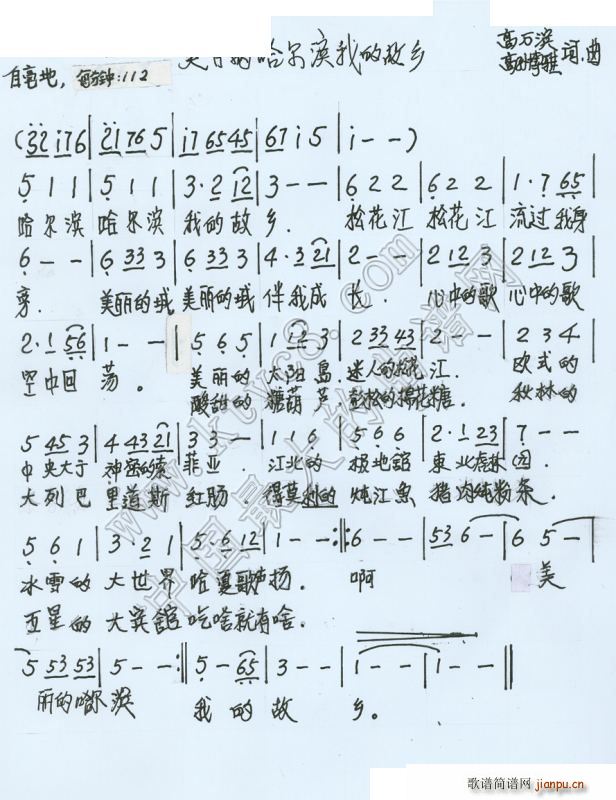 美丽的哈尔滨我的故乡
自豪地, 每分钟:112
词.曲
(32 i76 | 2i 76 5 | i7 65 45 | 67 i 5 | i - - )
5 1 1 | 5 1 1 | 3·2 12 | 3 - - | 6 2 2 | 6 2 2 | 1·7 65 |
哈尔滨 哈尔滨 我的故 乡. 松花江 松花江 流过我身
6 - - | 6 33 3 | 6 33 3 | 4·3 21 | 2 - - | 2 12 3 | 2 12 3 |
旁. 美丽的城 美丽的城 伴我成 长. 心中的歌 心中的歌
2·1 56 | 1 - - | 5 6 5 | 1 12 3 | 2 33 43 | 2 - - | 2 3 4 |
空中回 荡。 美丽的 太阳岛. 迷人的松花 江. 欧式的
酸甜的 糖葫芦. 彭松的棉花 糖. 秋林的
5 45 3 | 4 43 21 | 3 3 - | 1 1 6 | 5 6 6 | 2·1 23 | 7 - - |
中央大于 神密的索 菲亚. 江北的 极地馆 東北虎林 园.
大列巴 里道斯 红肠. 得莫利的 炖江魚 猪肉炖粉 条.
5 6 1 | 3·2 1 | 5·6 12 | 1 - - :||: 6 - - | 53 6 - | 6 5 - |
冰雪的 大世界 哈夏歌声 扬. 啊 美
五星的 大宾館 吃啥就有 啥.
5 53 53 | 5 - - :|| 5 - 65 | 3 - - | 1 - - | 1 - - ||
丽的哈尔 滨 我的 故 乡。
www.ktvc8.com
中国最大的曲谱网
歌谱简谱网
jianpu.cn